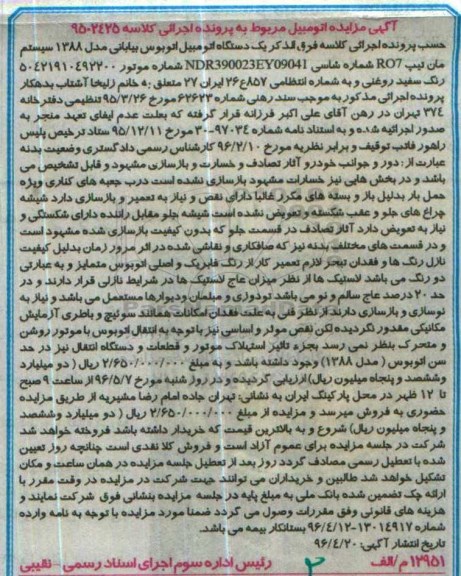 آگهی مزایده اتومبیل مربوط به پرونده اجرائی کلاسه ۹۵۰۲۴۲۵
حسب پرونده اجرائی کلاسه فوق الذکر یک دستگاه اتومبیل اتوبوس بیابانی مدل ۱۳۸۸ سیستم
مان تیپ RO7 شماره شاسی NDR390023EY09041 شماره موتور ۵۰۴۲۱۹۱۰۴۹۲۲۰۰
رنگ سفید روغنی و به شماره انتظامی ۸۵۷ع۲۶ ایران ۲۷ متعلق به خانم زلیخا آشتاب بدهکار
پرونده اجرائی مذکور به موجب سند رهنی شماره ۶۲۶۲۳ مورخ ۹۵/۳/۲۶ تنظیمی دفترخانه
۳۷۴ تهران در رهن آقای علی اکبر فرزانه قرار گرفته که بعلت عدم ایفای تعهد منجر به
صدور اجرائیه شده و به استناد نامه شماره ۹۷۰۳۴-۳۰ مورخ ۹۵/۱۲/۱۱ ستاد ترخیص پلیس
راهور فاتب توقیف و برابر نظریه مورخ ۹۶/۲/۱۰ کارشناس رسمی دادگستری وضعیت بدنه
عبارت از: دور و جوانب خودرو آثار تصادف و خسارت و بازسازی مشهود و قابل تشخیص می
باشد و در بخش هایی نیز خسارات مشهود بازسازی نشده است درب جعبه های کناری ویژه
حمل بار بدلیل باز و بسته های مکرر غالبا دارای نقص و نیاز به تعمیر و بازسازی دارد شیشه
چراغ های جلو و عقب شکسته و تعویض نشده است شیشه جلو مقابل راننده دارای شکستگی و
نیاز به تعویض دارد آثار تصادف در قسمت جلو که بدون کیفیت بازسازی شده مشهود است
و در قسمت های مختلف بدنه نیز که صافکاری و نقاشی شده در اثر مرور زمان بدلیل کیفیت
نازل رنگ ها و فقدان تبحر لازم تعمیر کار از رنگ فابریک و اصلی اتوبوس متمایز و به عبارتی
دو رنگ می باشد لاستیک ها از نظر میزان عاج لاستیک ها در شرایط نازلی قرار دارند و در
حد ۲۰ درصد عاج سالم و نو می باشد تودوزی و مبلمان ودیوارها مستعمل می باشد و نیاز به
نوسازی و بازسازی دارند از نظر فنی به علت فقدان امکانات همانند سوئیچ و باطری آزمایش
مکانیکی مقدور نگردیده لکن نقص موثر و اساسی نیز با توجه به انتقال اتوبوس با موتور روشن
و متحرک بنظر نمی رسد بجزء تاثیر استهلاک موتور و قطعات و دستگاه انتقال نیز در حد
سن اتوبوس ( مدل ۱۳۸۸) وجود داشته باشد و به مبلغ ۲/۶۵۰/۰۰۰/۰۰۰ ریال ( دو میلیارد
وششصد و پنجاه میلیون ریال) ارزیابی گردیده و در روز شنبه مورخ ۹۶/۵/۷ از ساعت ۹ صبح
تا ۱۲ ظهر در محل پارکینگ ایران به نشانی: تهران جاده امام رضا مشیریه از طریق مزایده
حضوری به فروش میرسد و مزایده از مبلغ ۲/۶۵۰/۰۰۰/۰۰۰ ریال ( دو میلیارد وششصد
و پنجاه میلیون ریال) شروع و به بالاترین قیمت که خریدار داشته باشد فروخته خواهد شد
شرکت در جلسه مزایده برای عموم آزاد است و فروش کلا نقدی است چنانچه روز تعیین
شده با تعطیل رسمی مصادف گردد روز بعد از تعطیل جلسه مزایده در همان ساعت و مکان
تشکیل خواهد شد طالبین و خریداران می توانند جهت شرکت در مزایده در وقت مقرر با
ارائه چک تضمین شده بانک ملی به مبلغ پایه در جلسه مزایده بنشانی فوق شرکت نمایند و
هزینه های قانونی وفق مقررات وصول می گردد ضمنا مورد مزایده با توجه به نامه وارده
شماره ۱۳۰۱۴۹۱۷-۹۶/۴/۱۲ بستانکار بیمه می باشد.
تاریخ انتشار آگهی: ۹۶/۴/۲۰
۱۲۹۵۱/م الف رئیس اداره سوم اجرای اسناد رسمی - نقیبی
۲